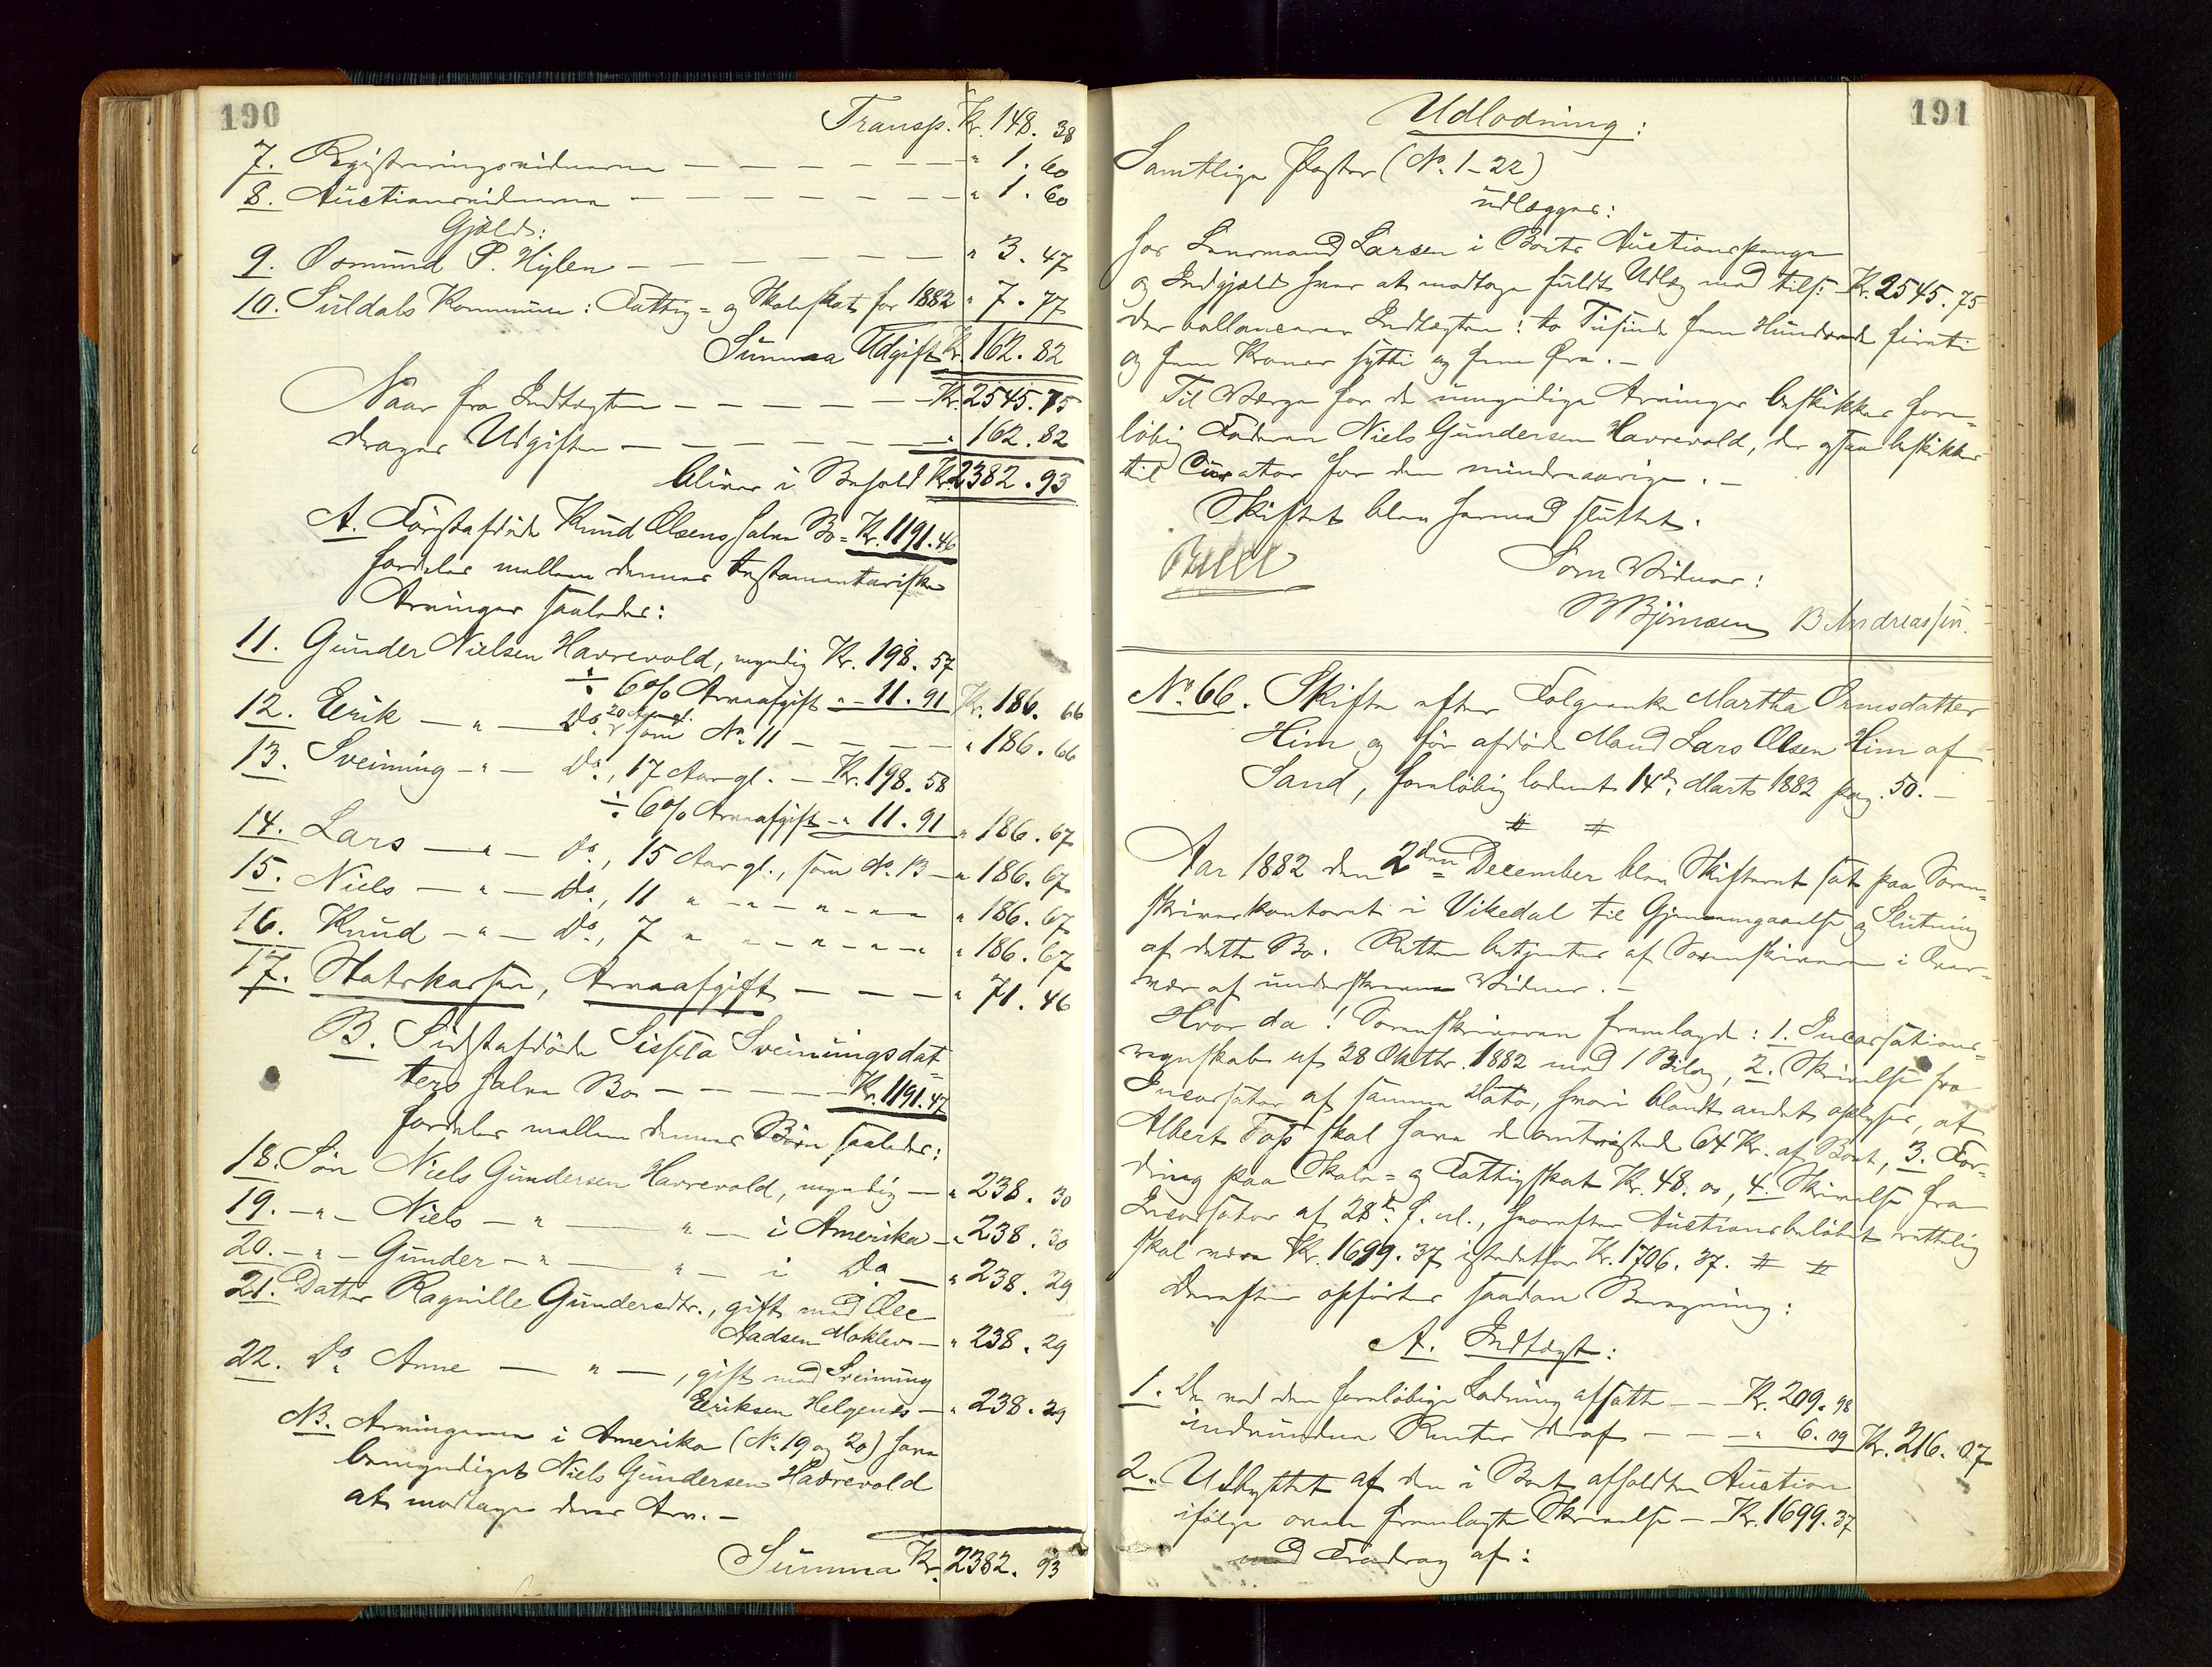 190
Transp. Kr. 148. 38
7. Registreringsvidnerne — — — — — — " 1. 60
8. Auctionsvidnerne — — — — — — — " 1. 60
Gjæld:
9. Osmund P. Hylen — — — — — — " 3. 47
10. Suldals Kommune: Fattig= og Skoleskat for 1882 " 7. 77
Summa Udgift Kr. 162. 82
Naar fra Indtægten — — — — — Kr. 2545. 75
drages Udgiften — — — — — — " 162. 82
bliver i Behold Kr. 2382. 93
A. Førstafdøde Knud Olsens halve Bo = Kr. 1191. 46
fordeles mellem dennes testamentariske
Arvinger saaledes:
11. Gunder Nielsen Havrevold, myndig Kr. 198. 57
÷ 6% Arveafgift - " - 11. 91 Kr. 186. 66
12. Eerik — " — Do. 20 Aar gl. som No. 11 — — — — " 186. 66
13. Sveinung - " — Do., 17 Aar gl. — Kr. 198. 58
÷ 6% Arveafgift - " 11. 91 " 186. 67
14. Lars — " — Do., 15 Aar gl., som No. 13 — " 186. 67
15. Niels — " — Do., 11 " - " - " - " — " 186. 67
16. Knud — " — Do., 7 " " - " - " - " 186. 67
17. Statskassen, Arveafgift — — — " 71. 46
B. Sidstafdøde Sissela Sveinungsdat=
ters halve Bo — — — — — Kr. 1191. 47
fordeles mellem dennes Børn saaledes:
18. Søn Niels Gundersen Havrevold, myndig — " 238. 30
19. - " - Niels — " — " — i Amerika — " 238. 30
20. - " - Gunder - " — " — i Do. — " 238. 29
21. Datter Ragnille Gundersdtr., gift med Ole
Aadsen Moklev — " 238. 29
22. Do. Anne — " — , gift med Sveinung
Eeriksen Helgenes — " 238. 29
NB. Arvingerne i Amerika (No. 19 og 20) have
bemyndiget Niels Gundersen Havrevold
at modtage deres Arv. —
Summa Kr. 2382. 93
191
Udlodning:
Samtlige Poster (No. 1-22)
udlægges:
hos Lensmand Larsen i Boets Auctionspenge
og Indgjæld hver at modtage fuldt Udlæg med tils: Kr. 2545. 75
der ballancerer Indtægten: to Tusinde fem Hundrede firti
og fem Kroner sytti og fem Øre. —
Til Værge for de umyndige Arvinger beskikkes fore=
løbig Faderen Niels Gundersen Havrevold, der ogsaa beskikkes
til Curator for den mindreaarige. —
Skiftet blev hermed sluttet.
Som Vidner:
Bjørnsen B Andreassen.
No. 66. Skifte efter Folgeenke Martha Ormsdatter
Him og før afdøde Mand Lars Olsen Him af
Sand, foreløbig lodnet 14de Marts 1882 pag. 50. —
# #
Aar 1882 den 2den December blev Skifteret sat paa Soren=
skriverkontoret i Vikedal til Gjennemgaaelse og Slutning
af dette Bo. Retten betjentes af Sorenskriveren i Over=
vær af underskrevne Vidner. —
Hvor da! Sorenskriveren fremlagde: 1. Incassations=
regnskab af 28 Oktbr. 1882 med 1 Bilag, 2. Skrivelse fra
Incassator af samme Dato, hvori blandt andet oplyses, at
Albert Foss skal have deomtvistede 64 Kr. af Boet, 3. For=
dring paa Skole= og Fattigskat Kr. 48. 00, 4. Skrivelse fra
Incassator af 28de f. M., hvorefter Auctionsbeløbet rettelig
skal være Kr. 1699. 37 istedetfor Kr. 1706. 37. # #
Derefter opførtes saadan Beregning:
A. Indtægt:
1. De ved den foreløbige Lodning afsatte — — Kr. 209. 98
indvundne Renter deraf — — — " 6. 09 Kr. 216. 07
2. Udbyttet af den i Boet afholdte Auction
ifølge oven fremlagte Skrivelse — Kr. 1699. 37
med Fradrag af: